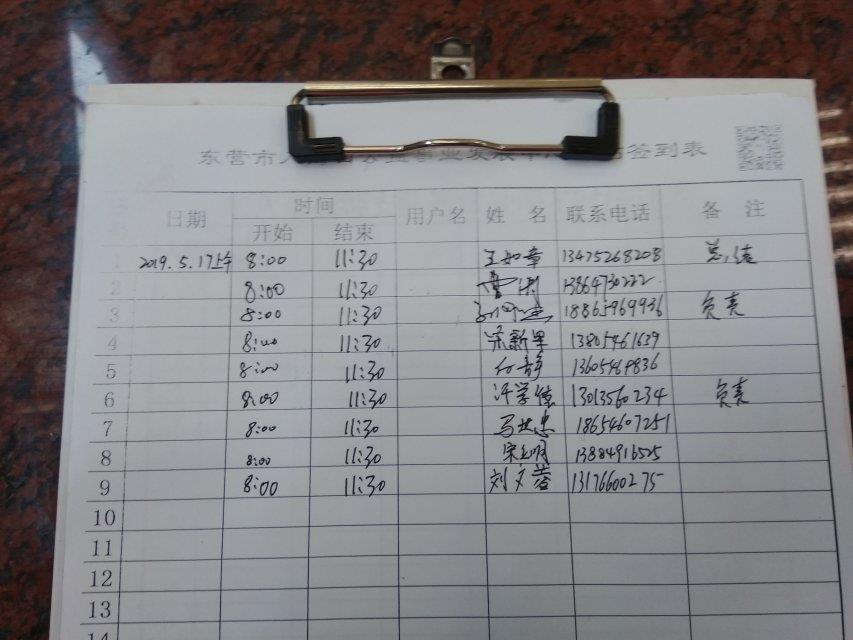 东营市 签到表
日期 时间 用户名 姓 名 联系电话 备 注
开始 结束
1 2019.5.17上午 8:00 11:30 王如章 13475268208
2 8:00 11:30 13864730222
3 8:00 11:30 18865969936 负责
4 8:00 11:30 宋新军 13805461639
5 8:00 11:30 石静 13605469836
6 8:00 11:30 许学健 13013560234 负责
7 8:00 11:30 马世忠 18654607251
8 8:00 11:30 宋 13884916525
9 8:00 11:30 刘文蓉 13176600275
10
11
12
13
14